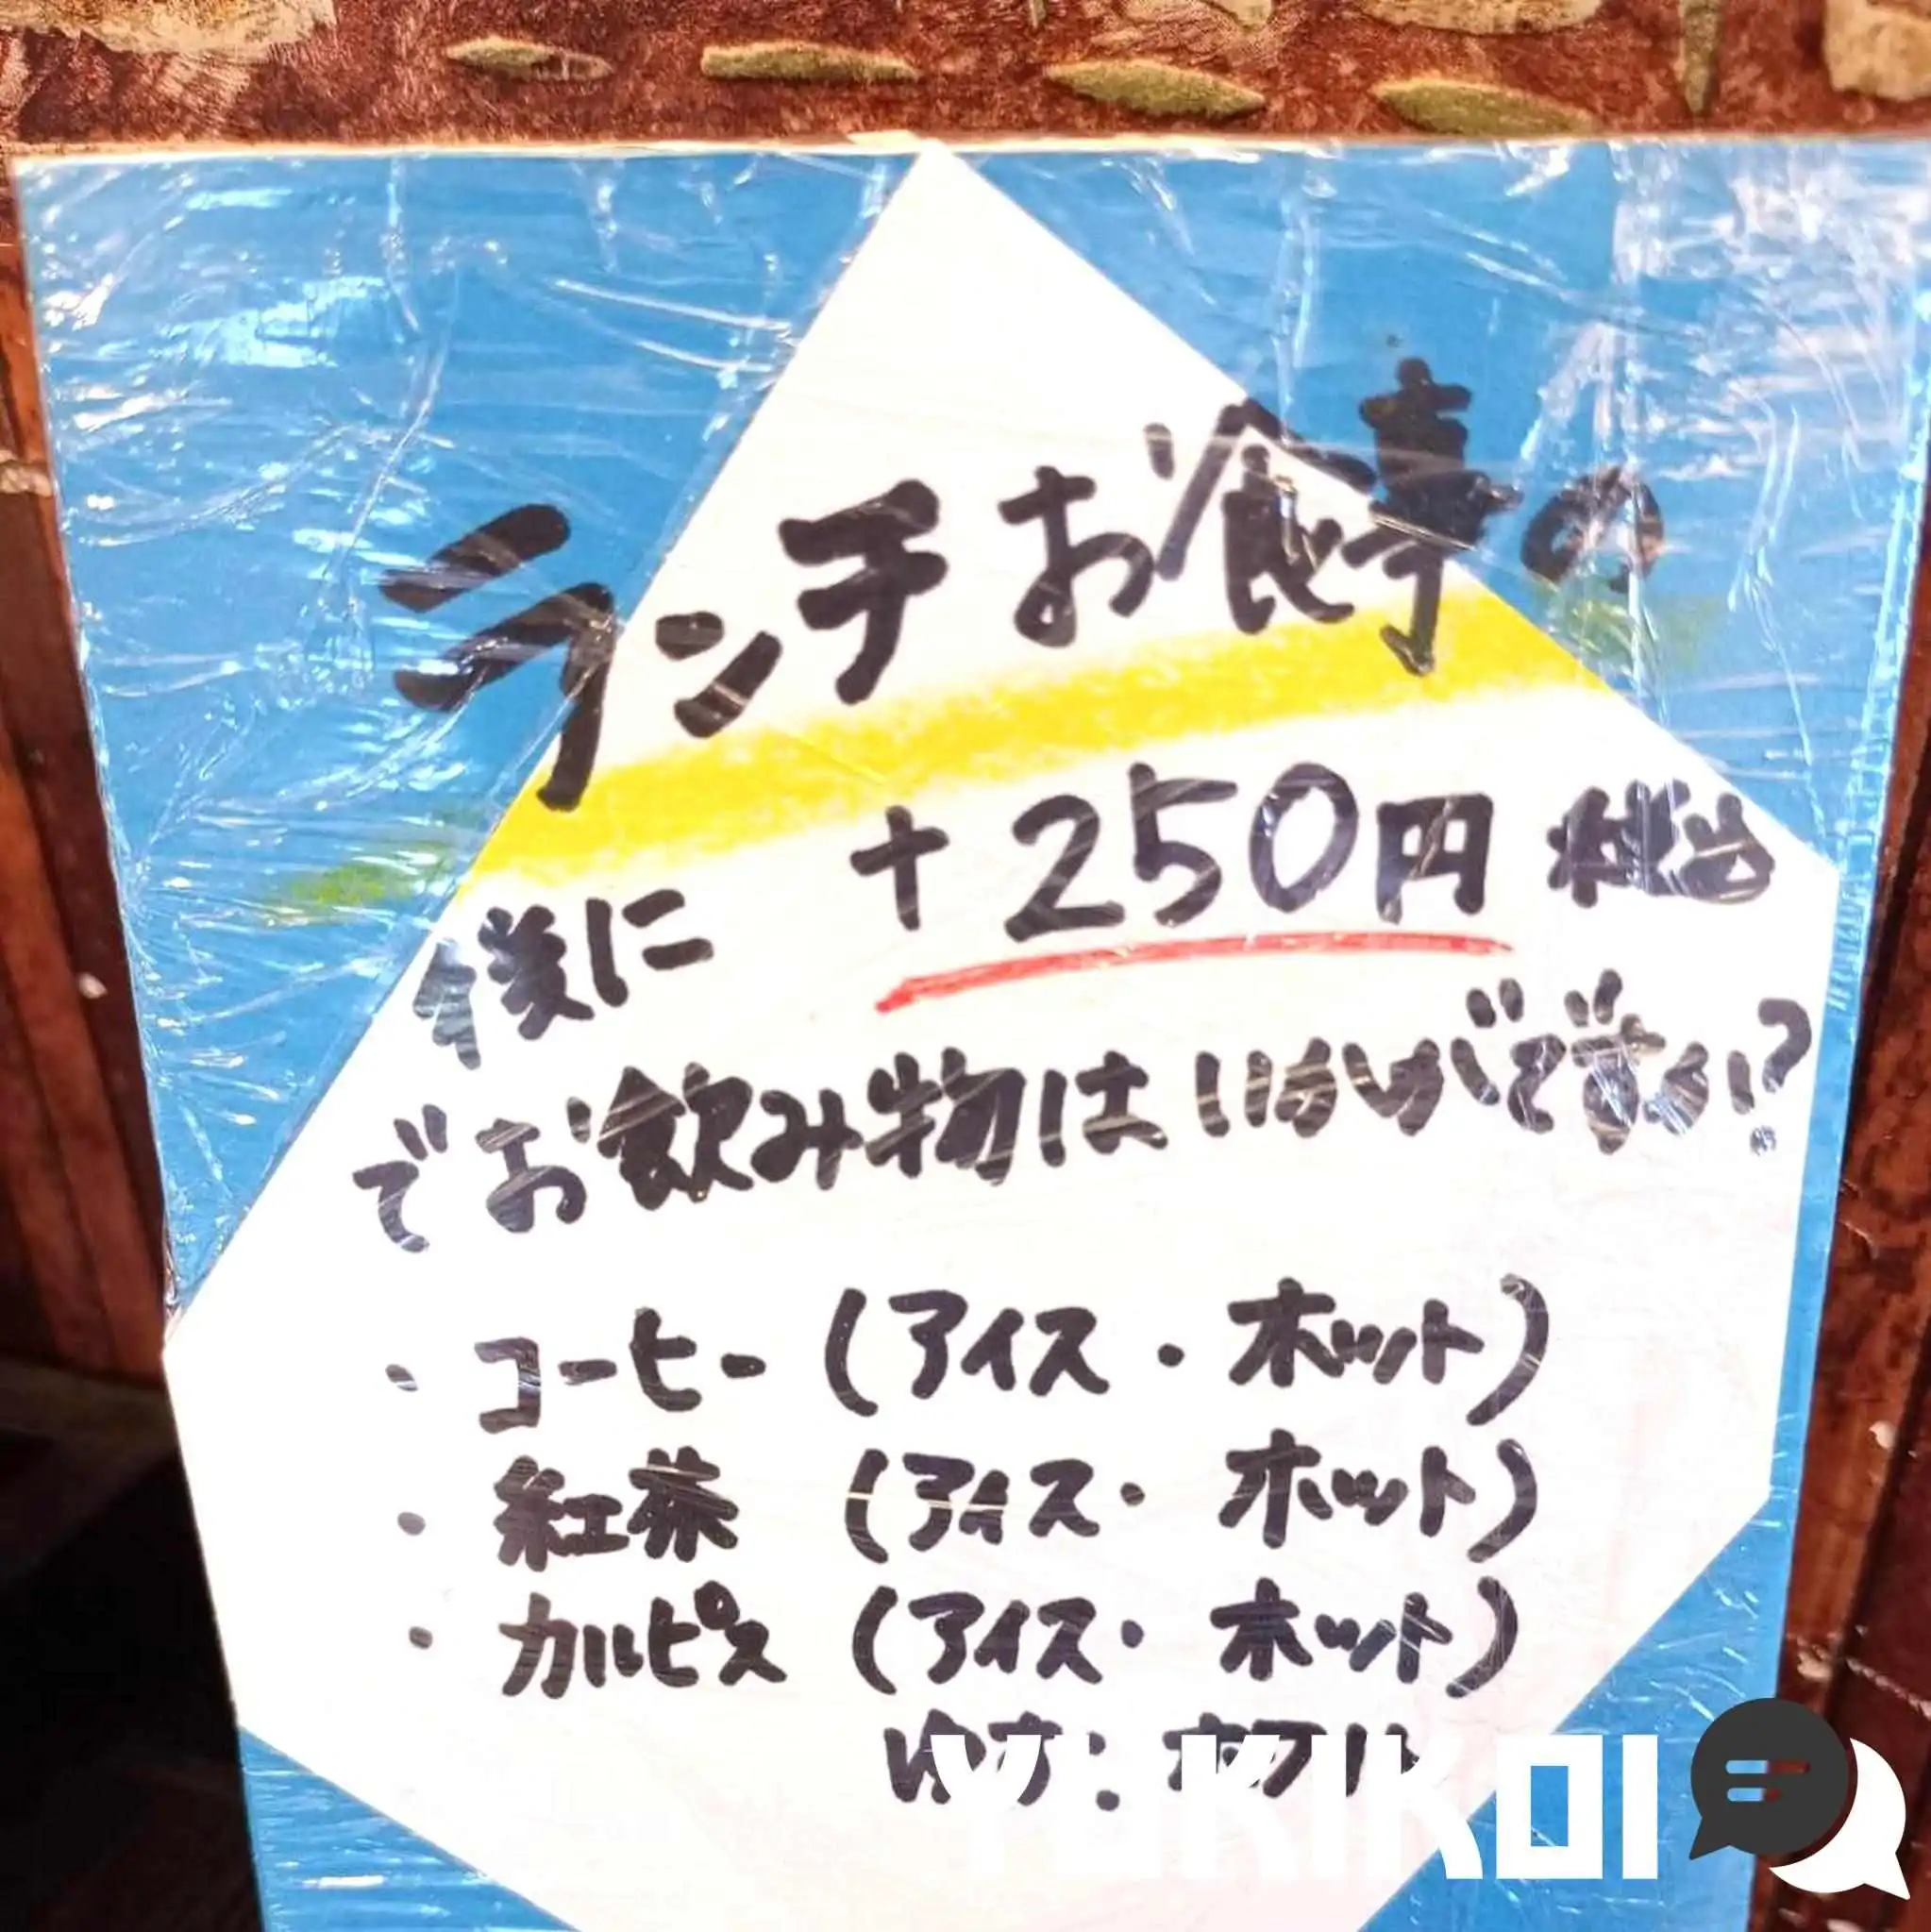 ランチお食事の
様に +250円 税込
でお飲み物はいかがですか?
・コーヒー (アイス・ホット)
・紅茶 (アイス・ホット)
・カルピス (アイス・ホット)
YUKIKOI